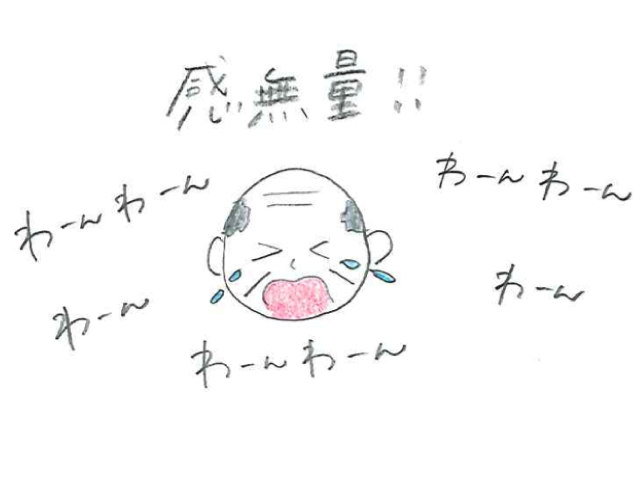 感無量!!
わーんわーん
わーんわーん
わーん
わーん
わーんわーん